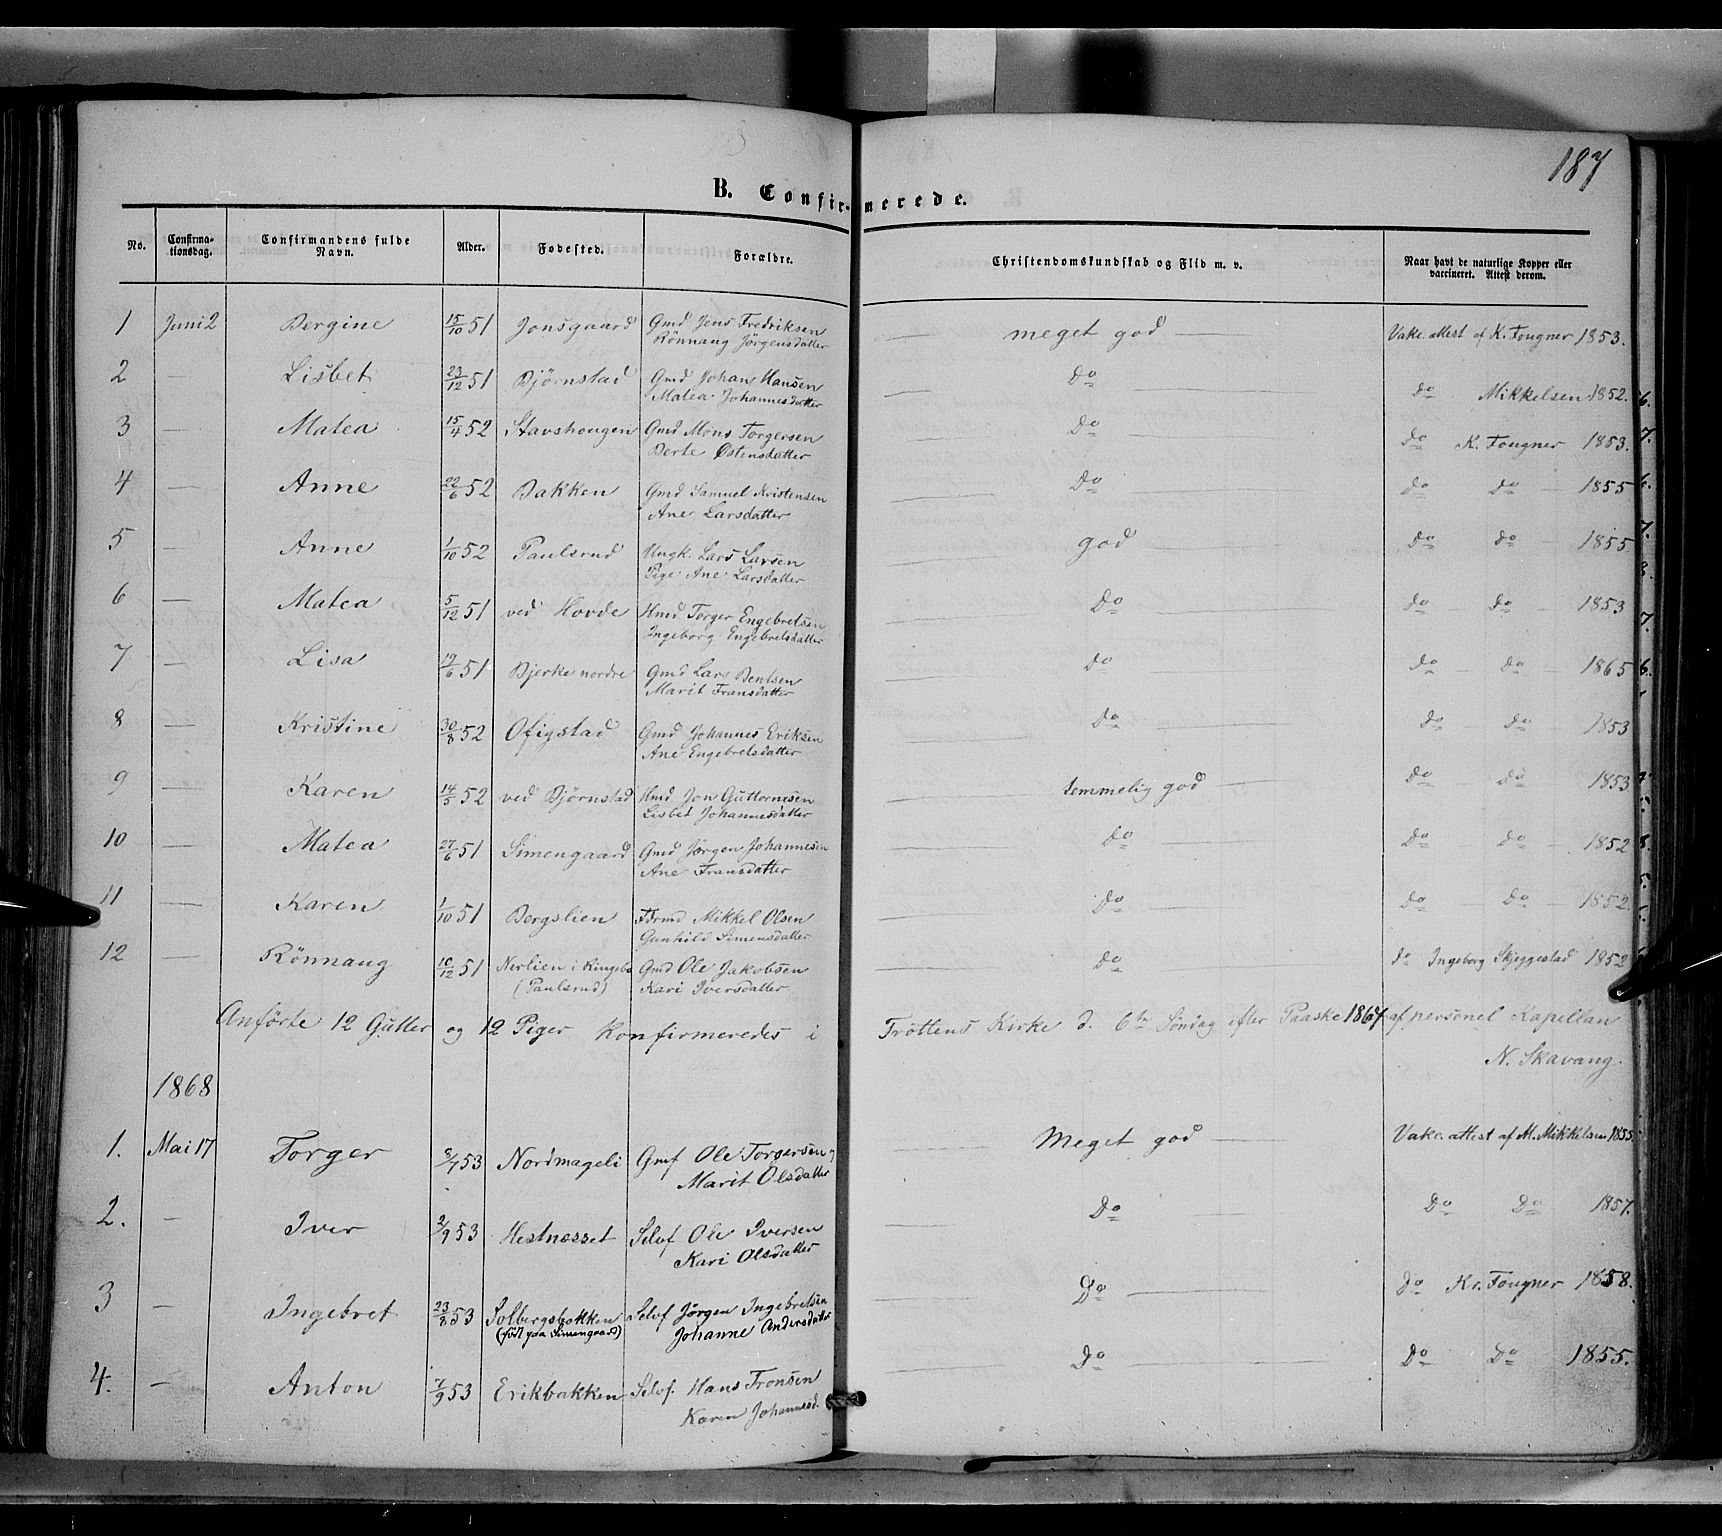 187
B. Confirmerede.
No. Confirmationsdag. Confirmandens fulde Navn. Alder. Fødested. Forældre. Christendomskundskab og Flid m. v. Naar havt de naturlige Kopper eller vaccineret. Attest derom.
1 Juni 2 Bergine 15/10 51 Jonsgaard Gmd Jens Fredriksen — meget god — Vakc. attest af K. Fougner 1853.
Rönnaug Jörgensdatter
2 — Lisbet 23/12 51 Björnstad Gmd Johan Hansen — Do — do Mikkelsen 1852.
Matea Johannesdatter
3 — Matea 15/4 52 Stavshougen Gmd Mons Torgersen — Do — do K. Fougner 1853.
Berte Østensdatter
4 — Anne 22/6 52 Bakken Gmd Samuel Kristensen — Do — do do — 1855
Ane Larsdatter
5 — Anne 1/10 52 Paulsrud Ungk. Lars Larsen — god — do do — 1855
Pige Ane Larsdatter
6 — Matea 5/12 51 ved Hovde Hmd Torger Engebretsen — Do — do do — 1853
Ingeborg Engebretsdatter
7 — Lisa 19/6 51 Bjerke nordre Gmd Lars Bentsen — do — do — do — 1865
Marit Fransdatter
8 — Kristine 30/8 52 Ofigstad Gmd Johannes Eriksen — do — do do — 1853
Ane Engebretsdatter
9 — Karen 14/5 52 ved Björnstad Hmd Jon Guttormsen — temmelig god — do do — 1853
Lisbet Johannesdatter
10 — Matea 27/6 51 Simengaard Gmd Jørgen Johannesen — do — do do — 1852
Ane Fransdatter
11 — Karen 1/10 51 Bergslien Mikkel Olsen — do — do do — 1852.
Gunhild Simensdatter
12 — Rönnaug 10/12 51 Nerlien i Ringebo Gmd Ole Jakobsen — do — do Ingeborg Skjeggestad 1852
(Paulsrud) Kari Iversdatter
Anförte 12 Gutter og 12 Piger konfirmeredes i Trottens Kirke d. 6te Söndag efter Paaske 1867 af personel Kapellan
N. Skavang.
1868
1. Mai 17 Torger 8/7 53 Nordmageli Gmf Ole Torgersen — Meget god — Vakc. attest af M. Mikkelsen 1855.
Marit Olsdatter
2. — Iver 2/9 53 Hestnæsset Selvf Ole Iversen — Do — Do Do 1857.
Kari Olsdatter
3 — Ingebret 23/8 53 Solbergsbakken Selvf Jørgen Ingebretsen — Do — do Kr. Fougner 1858.
(født paa Simengaard) Johanne Andersdatter
4. — Anton 7/9 53 Erikbakken Selvf. Hans Tronsen — Do — Do Do 1855.
Karen Johannesd.